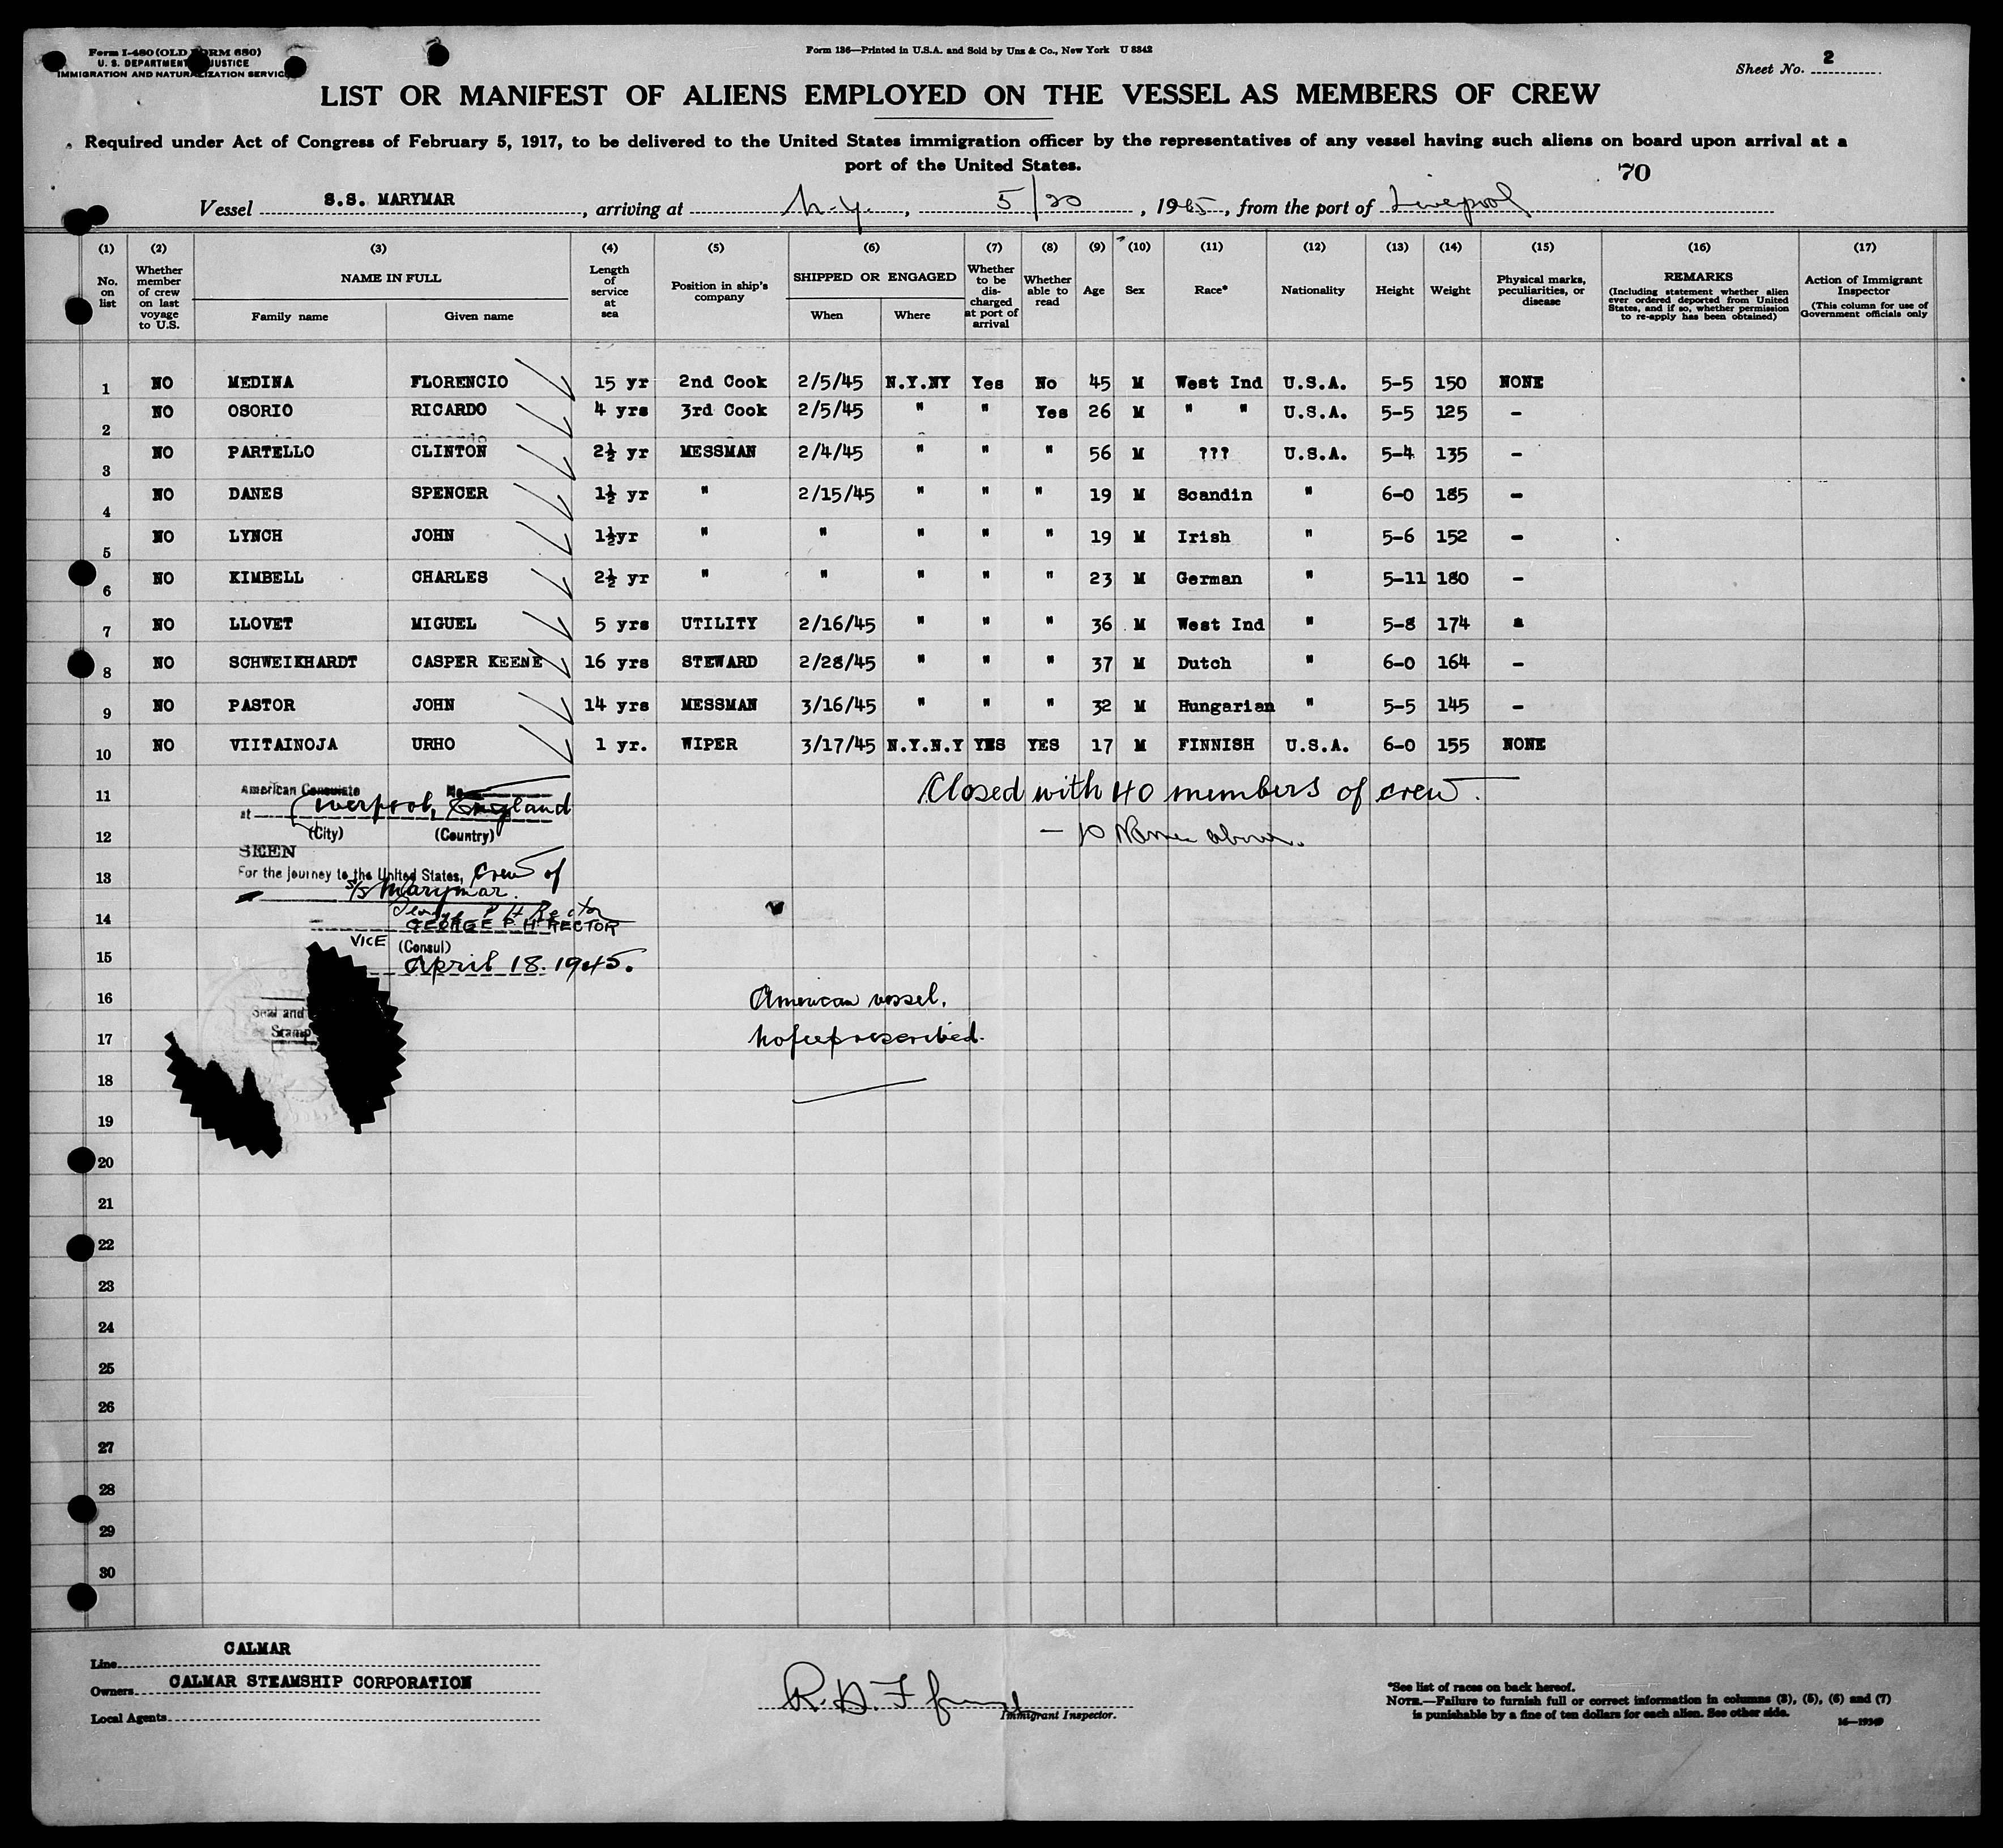 Form I-480 (OLD FORM 680)
U. S. DEPARTMENT JUSTICE
IMMIGRATION AND NATURALIZATION SERVICE
Form 136—Printed in U.S.A. and Sold by Unz & Co., New York U 8342
Sheet No. 2
LIST OR MANIFEST OF ALIENS EMPLOYED ON THE VESSEL AS MEMBERS OF CREW
Required under Act of Congress of February 5, 1917, to be delivered to the United States immigration officer by the representatives of any vessel having such aliens on board upon arrival at a
port of the United States.
70
Vessel S.S. MARYMAR, arriving at N.Y., 5/20, 1945, from the port of Liverpool
(1) (2) (3) (4) (5) (6) (7) (8) (9) (10) (11) (12) (13) (14) (15) (16) (17)
No. on list
Whether member of crew on last voyage to U.S.
NAME IN FULL
Family name
Given name
Length of service at sea
Position in ship's company
SHIPPED OR ENGAGED
When
Where
Whether to be discharged at port of arrival
Whether able to read
Age
Sex
Race*
Nationality
Height
Weight
Physical marks, peculiarities, or disease
REMARKS
(Including statement whether alien ever ordered deported from United States, and if so, whether permission to re-apply has been obtained)
Action of Immigrant Inspector
(This column for use of Government officials only
1 NO MEDINA FLORENCIO 15 yr 2nd Cook 2/5/45 N.Y.NY Yes No 45 M West Ind U.S.A. 5-5 150 NONE
2 NO OSORIO RICARDO 4 yrs 3rd Cook 2/5/45 " " Yes 26 M " " U.S.A. 5-5 125 -
3 NO PARTELLO CLINTON 2½ yr MESSMAN 2/4/45 " " " 56 M ??? U.S.A. 5-4 135 -
4 NO DANES SPENCER 1½ yr " 2/15/45 " " " 19 M Scandin " 6-0 185 -
5 NO LYNCH JOHN 1½yr " " " " " 19 M Irish " 5-6 152 -
6 NO KIMBELL CHARLES 2½ yr " " " " " 23 M German " 5-11 180 -
7 NO LLOVET MIGUEL 5 yrs UTILITY 2/16/45 " " " 36 M West Ind " 5-8 174
8 NO SCHWEIKHARDT CASPER KEENE 16 yrs STEWARD 2/28/45 " " " 37 M Dutch " 6-0 164 -
9 NO PASTOR JOHN 14 yrs MESSMAN 3/16/45 " " " 32 M Hungarian " 5-5 145 -
10 NO VIITAINOJA URHO 1 yr. WIPER 3/17/45 N.Y.N.Y YES YES 17 M FINNISH U.S.A. 6-0 155 NONE
11
12
13
14
15
16
17
18
19
20
21
22
23
24
25
26
27
28
29
30
American Consulate No.
at Liverpool, England
(City) (Country)
SEEN
For the journey to the United States, crew of
s/s Marymar.
George P H Rector
GEORGE P H RECTOR
VICE (Consul)
April 18. 1945.
Seal and
Stamp
Closed with 40 members of crew.
- 10 Names above.
American vessel.
No fee prescribed.
Line CALMAR
Owners CALMAR STEAMSHIP CORPORATION
Local Agents
Immigrant Inspector.
*See list of races on back hereof.
NOTE.—Failure to furnish full or correct information in columns (3), (5), (6) and (7)
is punishable by a fine of ten dollars for each alien. See other side.